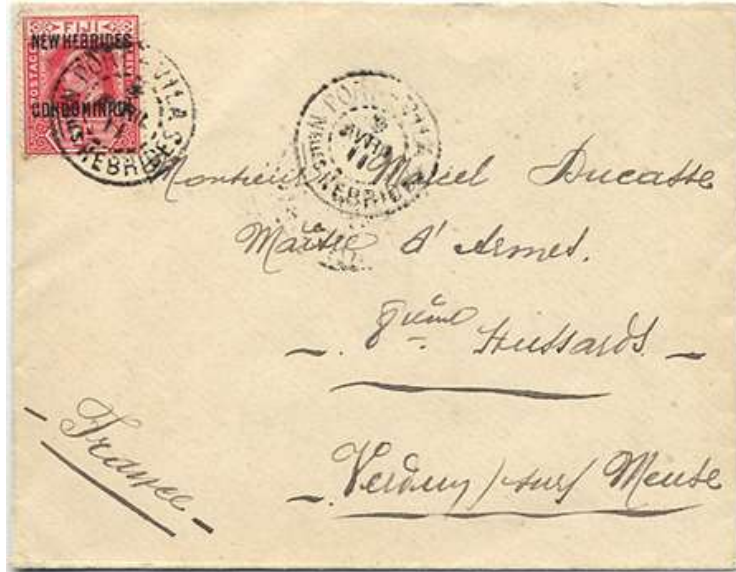 FIJI
NEW HEBRIDES
POSTAGE
CONDOMINIUM
PORT-VILA
AVRIL
11
Nlles HEBRIDES
PORT-VILA
AVRIL
11
Nlles HEBRIDES
Monsieur Marcel Ducasse
Maître d'Armes.
8ième Hussards
Verdun /sur/ Meuse
France